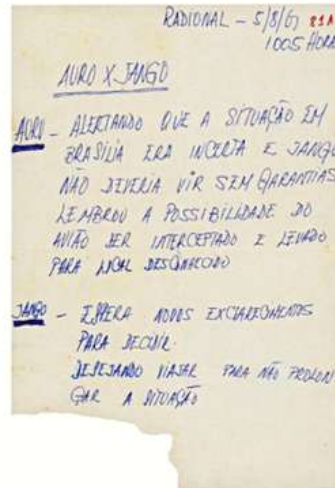 RADIONAL – 5/8/61 21A
1005 HORA
AURO X JANGO
AURO – ALERTANDO QUE A SITUAÇÃO EM
BRASÍLIA ERA INCERTA E JANGO
NÃO DEVERIA VIR SEM GARANTIAS
LEMBROU A POSSIBILIDADE DO
AVIÃO SER INTERCEPTADO E LEVADO
PARA LOCAL DESCONHECIDO
JANGO – ESPERA NOVOS EXCLARECIMENTOS
PARA DECIDIR.
DESEJANDO VIAJAR PARA NÃO PROLON
GAR A SITUAÇÃO